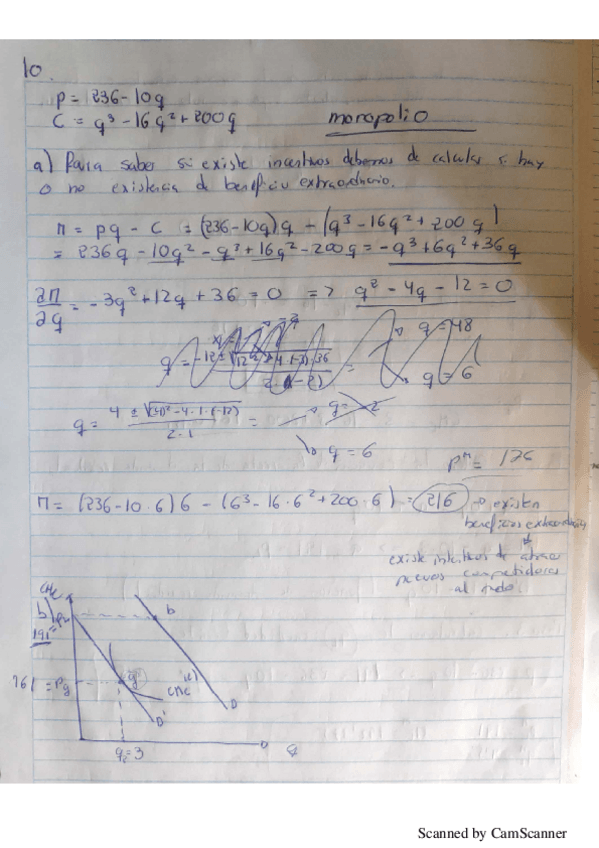 10.
p = 236 - 10q
C = q³ - 16q² + 200q
monopolio
a) Para saber si existe incentivos debemos de calcular si hay
o no existencia de beneficio extraordinario.
Π = pq - C = (236 - 10q)q - (q³ - 16q² + 200q)
= 236q - 10q² - q³ + 16q² - 200q = -q³ + 6q² + 36q
∂Π/∂q = -3q² + 12q + 36 = 0 => q² - 4q - 12 = 0
q = 48
q = 6
q = (4 ± √((-4)² - 4·1·(-12))) / (2·1) =
q = 6
pᵐ = 176
Π = (236 - 10·6)6 - (6³ - 16·6² + 200·6) = 216 → existen
beneficios extraordinarios
existe incentivos de
nuevos competidores
CMe
b
191 =
b
161 = Pq
CMC
D'
D
q
q = 3
Scanned by CamScanner